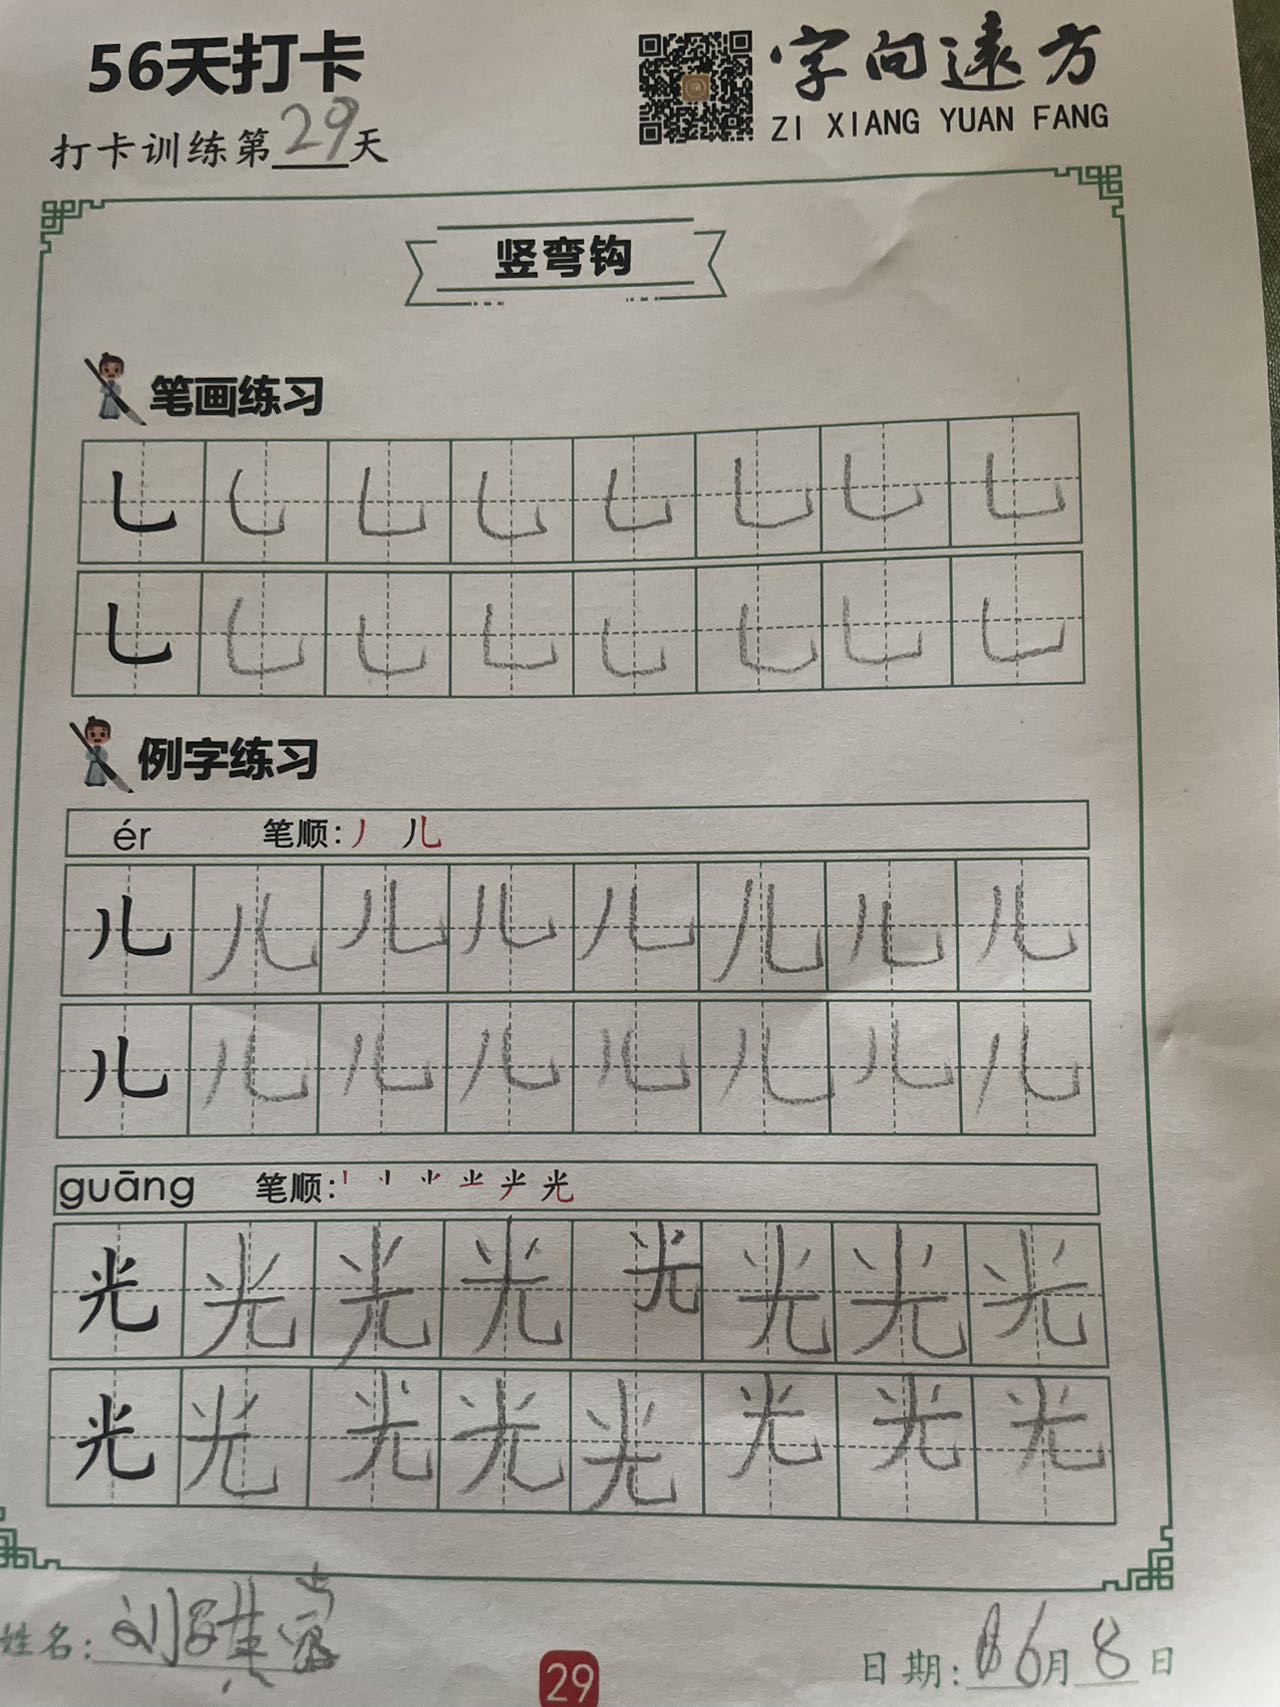 56天打卡
字向遠方
ZI XIANG YUAN FANG
打卡训练第29天
竖弯钩
笔画练习
乚 乚 乚 乚 乚 乚 乚 乚
乚 乚 乚 乚 乚 乚 乚 乚
例字练习
ér 笔顺:丿 儿
儿 儿 儿 儿 儿 儿 儿 儿
儿 儿 儿 儿 儿 儿 儿 儿
guāng 笔顺: 光
光 光 光 光 光 光 光 光
光 光 光 光 光 光 光 光
姓名:刘
29
日期:6月8日